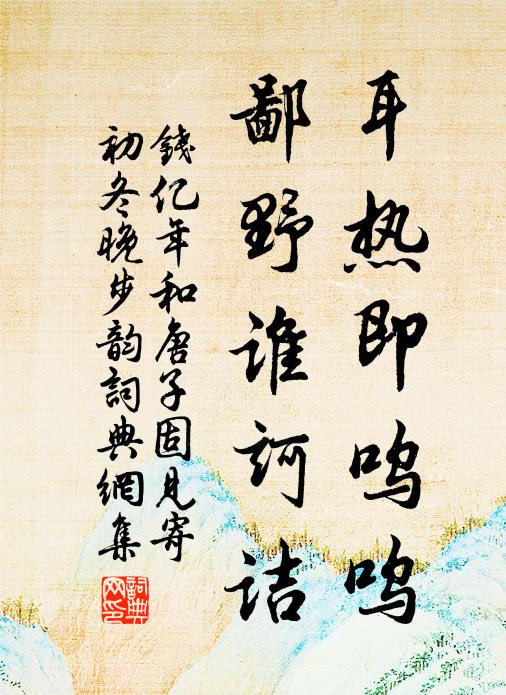 耳热即呜呜
鄙野谁诃诘
錢亿年和唐子固見寄
初冬晚步韵詞典網集
詞典
网印